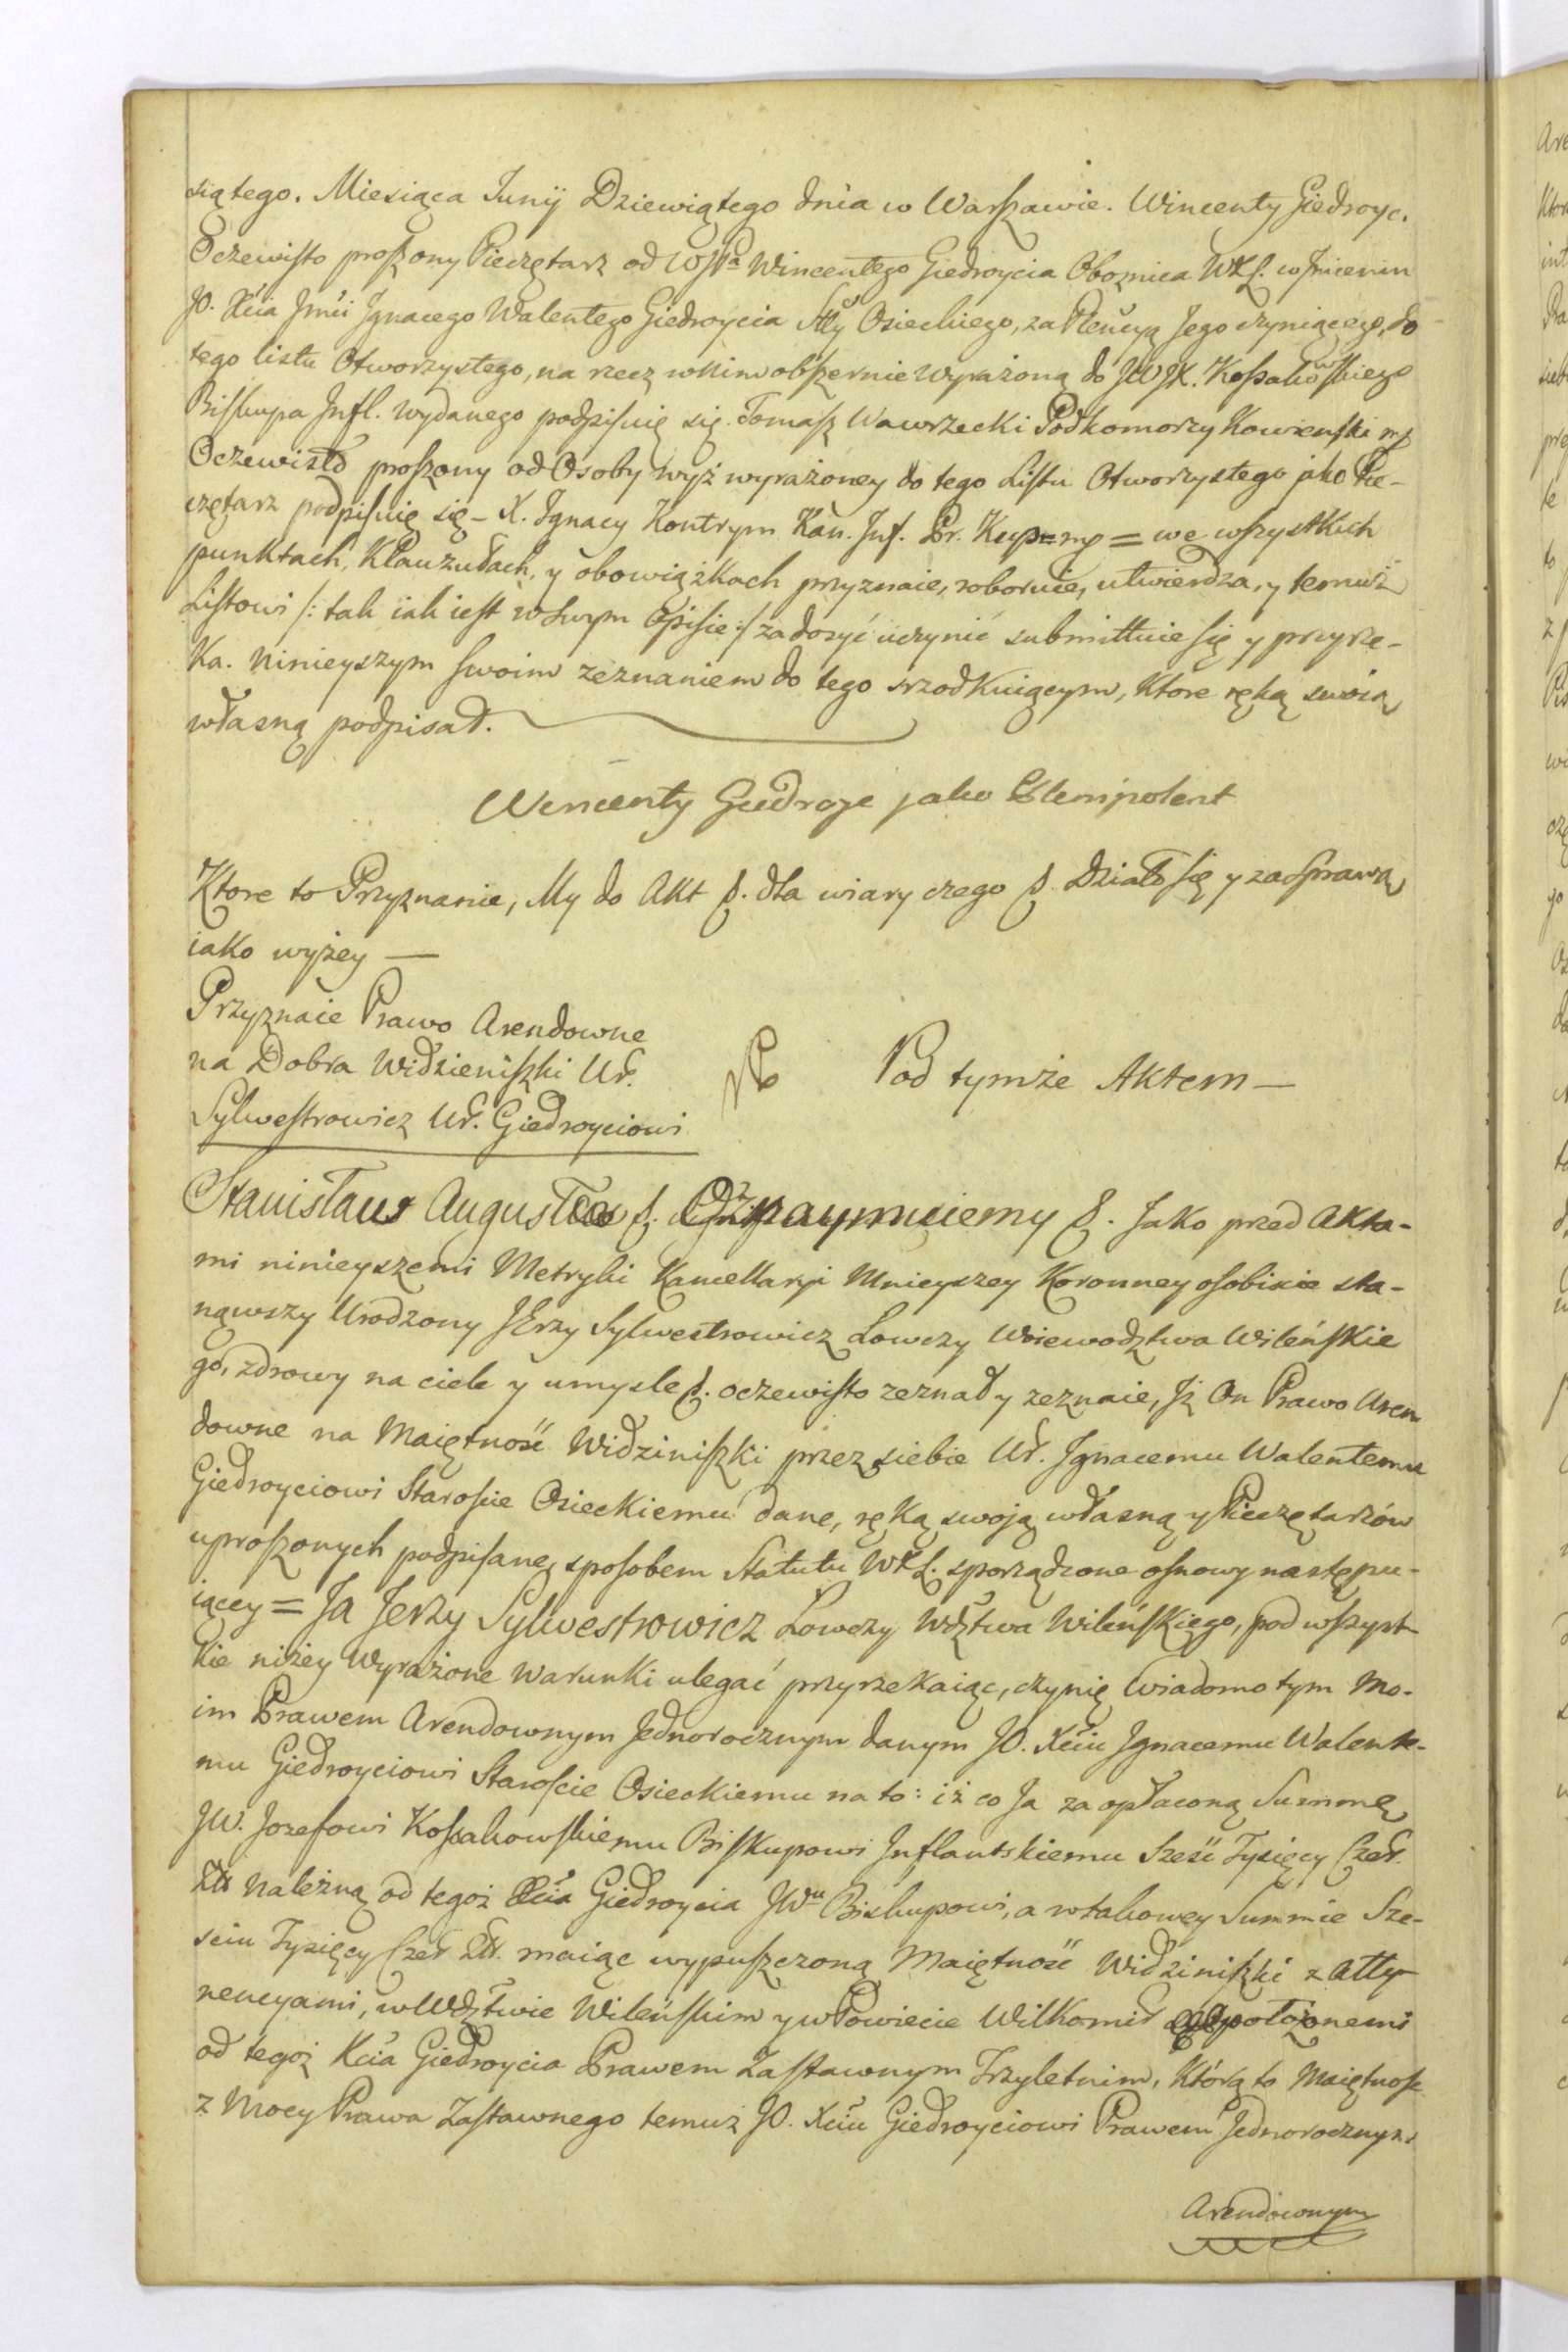 siątego. Miesiąca Junij Dziewiątego dnia w Warszawie. Wincenty Giedroyc.
Oczewisto proszony Pieczętarz od WJPa Wincentego Giedroycia Oboznica WXL. w Imieniu
JO. Xcia Jmci Ignacego Walentego Giedroycia Stty Osieckiego, za Plencyą Jego czyniącego, do
tego listu Otworzystego, na rzecz w nim obszernie wyrażoną do JWJX. Kossakowskiego
Biskupa Infl. wydanego podpisuię się. Tomasz Wawrzecki Podkomorzy Kowieński mp
Oczewisto proszony od Osoby wyż wyrażoney do tego Listu Otworzystego jako Pie-
czętarz podpisuię się – X. Ignacy Kontrym Kan. Inf. Pr. Kup = mp = we wszystkich
punktach, Klauzułach, y obowiązkach przyznaie, roboruie, utwierdza, y temuż
Listowi /: tak iak iest w swym Opisie :/ zadosyć uczynić submittuie się y przyrze-
ka. Ninieyszym swoim zeznaniem do tego srzodkuiącym, Ktore ręką swoią
własną podpisał.
Wincenty Giedroyc jako Plenipotent
Ktore to Przyznanie, My do Akt &. dla wiary czego &. Działo się y za Sprawą
iako wyżey —
Przyznaie Prawo Arendowne
na Dobra Widzieniszki Ur.
Sylwestrowicz Ur. Giedroyciowi
Pod tymże Aktem —
Stanisław August &. Oznaymuiemy &. Jako przed Akta-
mi ninieyszemi Metryki Kancellaryi Mnieyszey Koronney osobiście sta-
nąwszy Urodzony JErzy Sylwestrowicz Łowczy Woiewodztwa Wileńskie
go, zdrowy na ciele y umysle &. oczewisto zeznał y zeznaie, Iż On Prawo Aren
downe na Maiętność Widziniszki przez siebie Ur. Ignacemu Walentemu
Giedroyciowi Staroście Osieckiemu dane, ręką swoją własną y Pieczętarzów
uproszonych podpisane, sposobem Statutu WXL. sporządzone osnowy następu-
iącey = Ja Jerzy Sylwestrowicz Łowczy Wdztwa Wileńskiego, pod wszyst-
kie niżey wyrażone warunki ulegać przyrzekaiąc, czynię wiadomo tym mo-
im Prawem Arendownym Jednorocznym danym JO. Xciu Ignacemu Walente-
mu Giedroyciowi Staroście Osieckiemu na to: iż co Ja za opłaconą Summę
JW. Jozefowi Kossakowskiemu Biskupowi Inflantskiemu Sześć Tysięcy Czer.
Zł. należną od tegoż Xcia Giedroycia JWu Biskupowi, a w takowey Summie Sze-
sciu Tysięcy Czer Zł. maiąc wypuszczoną Maiętność Widziniszki z atty-
nencyami, w Wdztwie Wileńskim y w Powiecie Wilkomir położonemi
od tegoż Xcia Giedroycia Prawem Zastawnym Trzyletnim, Którą to Maiętność
z Mocy Prawa Zastawnego temuż JO. Xciu Giedroyciowi Prawem Jednorocznym
Arendownym